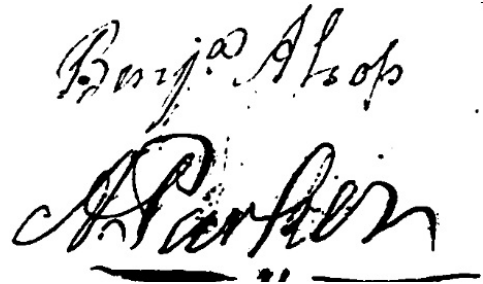 Benjª Alsop
A. Parker